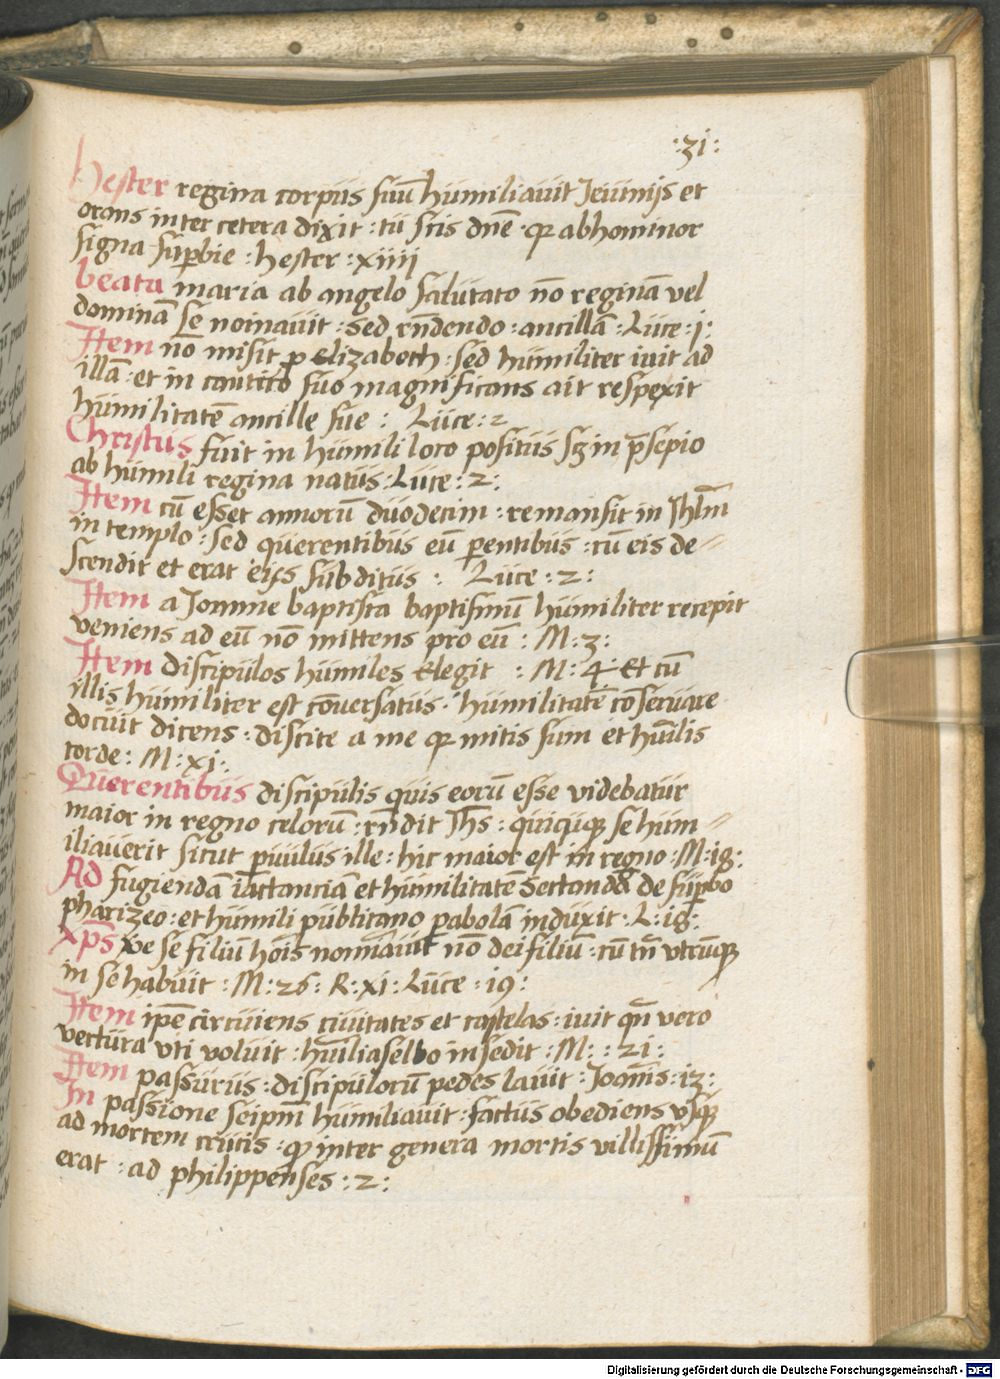 :31:
Hester regina corpus suū humiliavit Jeiuniis et
orans inter cetera dixit : tu scis dnē · qꝫ abhominor
signa suꝑbie : hester : xiiii
beata maria ab angelo salutato nō reginā vel
dominā se noīavit : sed rn̄dendo : ancillā : Luce : i :
Item nō misit ꝓ Elizabeth : sed humiliter iuit ad
illā : et in cantico suo magnificans ait respexit
humilitatē ancille sue : Luce : 2
Christus fuit in humili loco positus sꝫ in p̄sepio
ab humili regina natus : Luce : 2 :
Item cū esset annorū duodecim : remansit in Jhl̄m
in templo : sed querentibus eū ꝑentibus : cū eis de⸗
scendit et erat eijs subditus : Luce : 2 :
Item a Joanne baptista baptismū humiliter recepit
veniens ad eū nō mittens pro eū : M : 3 :
Item discipulos humiles Elegit : M : 4 Et cū
illis humiliter est cōuersatus · humilitatē cōseruare
docuit dicens : discite a me qꝫ mitis sum et hūilis
corde : M : xi :
Querentibus discipulis quis eorū esse videbatur
maior in regno celorū : rn̄dit Jhs̄ : quicūqꝫ se hum⸗
iliauerit sicut ꝑuulus ille : hic maior est in regno : M : 18 :
Ad fugiendā iactanciā et humilitatē sectandā de suꝑbo
pharizeo : et humili publicano ꝑabolā induxit · L : 18 :
xp̄s se filiū hoīs nominauit nō dei filiū : cū tn̄ vtrūqꝫ
in se habuit : M : 26 : R : xi : Luce : 19 :
Item ipē circuiens ciuitates et castelas : iuit qn̄ vero
vectura vti voluit : hūilia sello insedit : M : : 21 :
Item passurus : discipulorū pedes lauit : Joan̄is : 13 :
In passione seipm̄ humiliauit : factus obediens vsqꝫ
ad mortem crucis : qꝫ inter genera mortis villissimū
erat : ad philippenses : 2 :
Digitalisierung gefördert durch die Deutsche Forschungsgemeinschaft - DFG